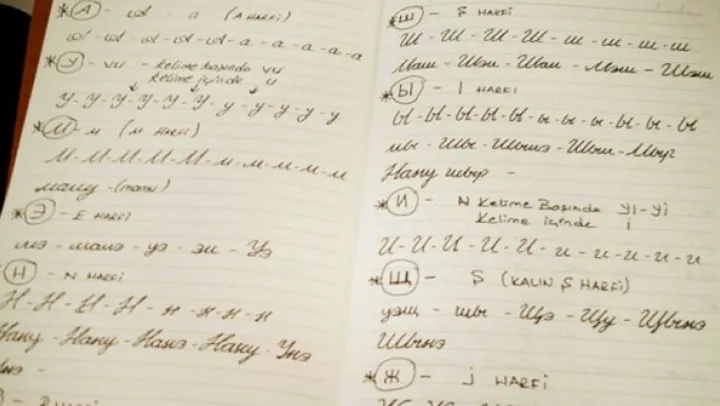 *А - а - а (A HARFİ)
а-а-а-а-а-а-а-а-а-а
*У - vu - kelime başında vu
kelime içinde u
У-У-У-У-У-У-у-у-у-у-у
*М - м (M HARFİ)
М-М-М-М-М-м-м-м-м-м
маму - (mamu)
*Э - E HARFİ
мэ - мамэ - уэ - эм - Уэ
Н - N HARFİ
Н-Н-Н-Н-н-н-н-н
Нану - Нану - Нанэ - Нану - Унэ
*Ш - Ş HARFİ
Ш-Ш-Ш-Ш-ш-ш-ш-ш
Маш - Шэн - Шам - Мэш - Шэш
*Ы - I HARFİ
Ы-Ы-Ы-Ы-Ы-ы-ы-ы-ы-ы
мы - Шы - Шынэ - Шыш -
Нану шыр -
*И - N Kelime Başında yı-yi
Kelime içinde i
И-И-И-И-И-и-и-и-и-и
*Щ - Ş (KALIN Ş HARFİ)
уэщ - щы - Щэ - Щу - Щынэ
Шынэ
*Ж - J HARFİ